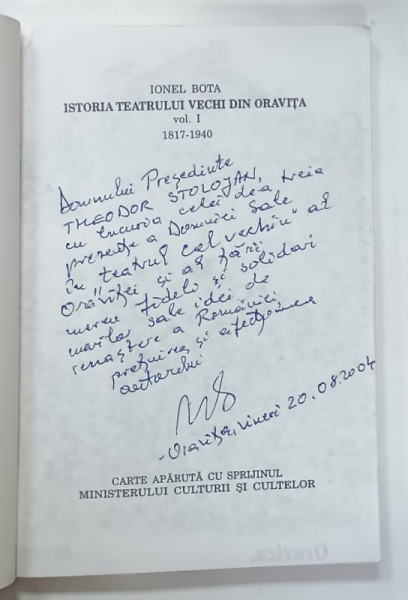 IONEL BOTA
ISTORIA TEATRULUI VECHI DIN ORAVIȚA
vol. I
1817-1940
Domnului Președinte
THEODOR STOLOJAN,
cu bucuria celei de a treia
prezențe a Domniei Sale
în "teatrul cel vechiu" al
Oraviței și al țării
mereu fidelo și solidari
marilor sale idei de
renaștere a României
prețuirea și afecțiunea
autorului
Oravița, vineri 20.08.2004
CARTE APĂRUTĂ CU SPRIJINUL
MINISTERULUI CULTURII ȘI CULTELOR